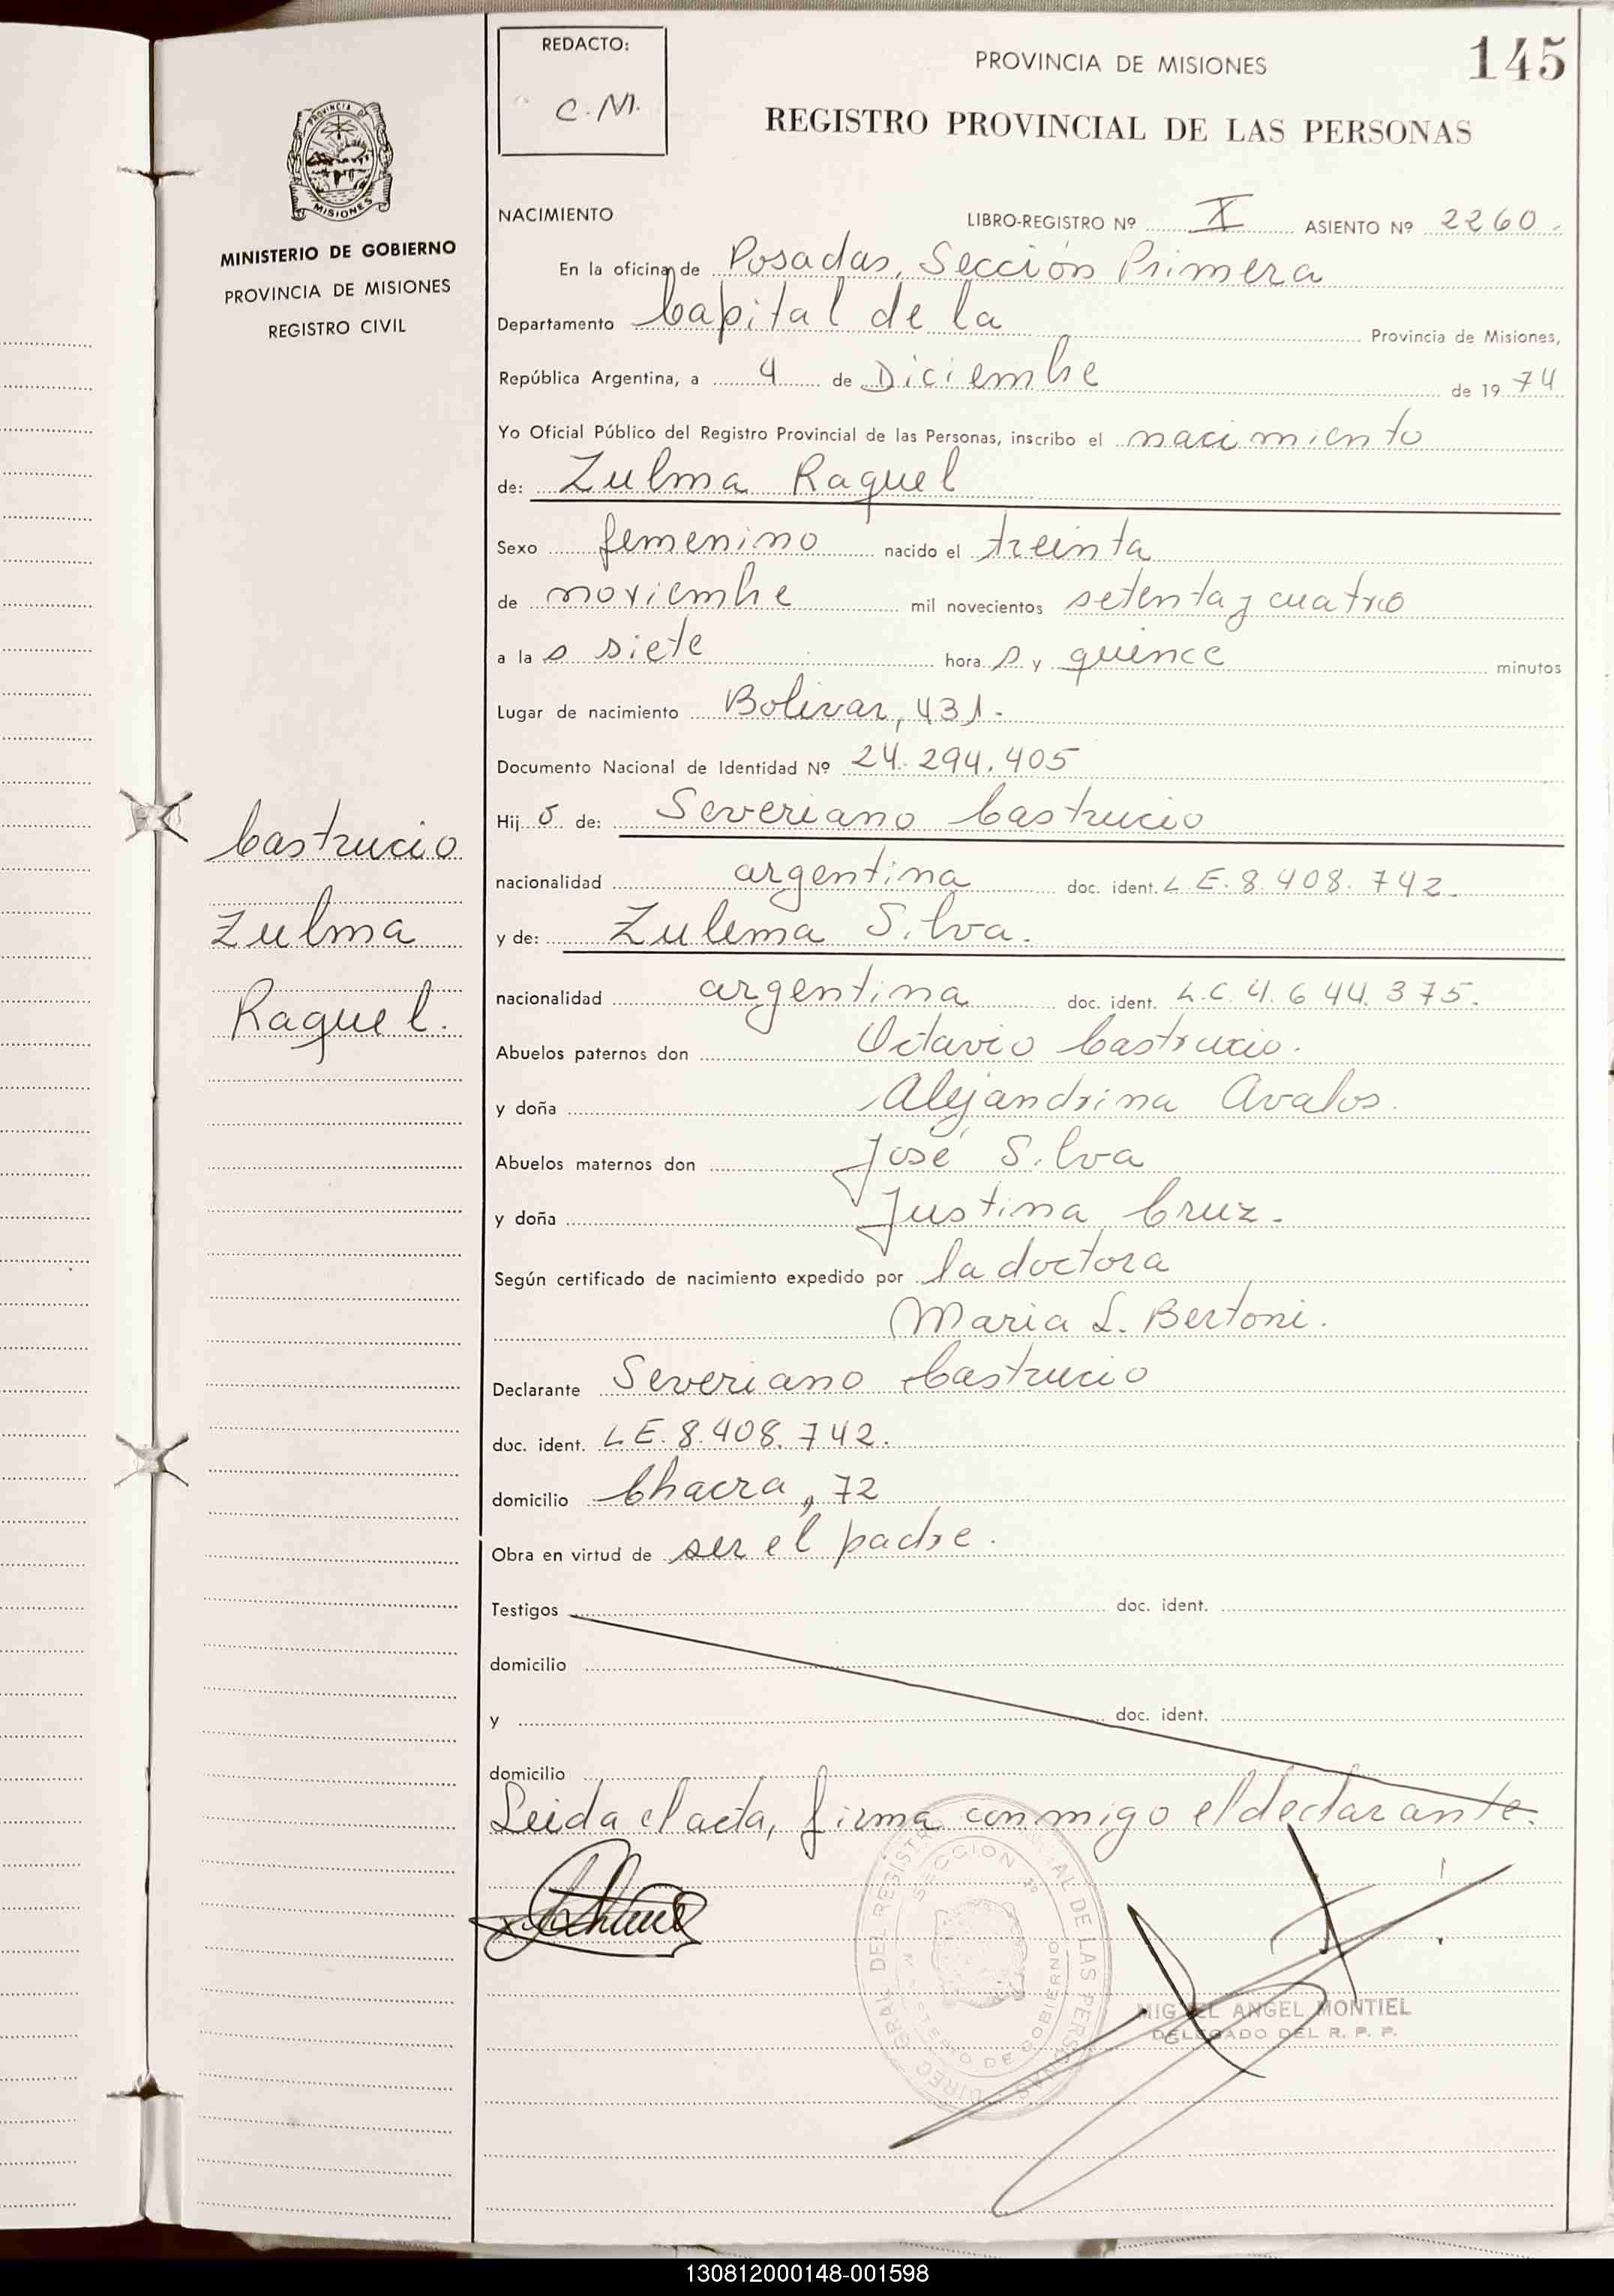 REDACTO:
C.M.
PROVINCIA DE MISIONES
145
REGISTRO PROVINCIAL DE LAS PERSONAS
PROVINCIA DE
MISIONES
MINISTERIO DE GOBIERNO
PROVINCIA DE MISIONES
REGISTRO CIVIL
Castrucio
Zulma
Raquel.
NACIMIENTO LIBRO-REGISTRO Nº X ASIENTO Nº 2260.
En la oficina de Posadas, Sección Primera
Departamento Capital de la Provincia de Misiones,
República Argentina, a 4 de Diciembre de 1974
Yo Oficial Público del Registro Provincial de las Personas, inscribo el nacimiento
de: Zulma Raquel
Sexo femenino nacido el treinta
de noviembre mil novecientos setenta y cuatro
a las siete horas y quince minutos
Lugar de nacimiento Bolivar, 431.
Documento Nacional de Identidad Nº 24.294.405
Hijo de: Severiano Castrucio
nacionalidad argentina doc. ident. L E. 8.408.742.
y de: Zulema Silva.
nacionalidad argentina doc. ident. L.C. 4.644.375.
Abuelos paternos don Octavio Castrucio.
y doña Alejandrina Avalos.
Abuelos maternos don José Silva
y doña Justina Cruz.
Según certificado de nacimiento expedido por la doctora
Maria L. Bertoni.
Declarante Severiano Castrucio
doc. ident. L E. 8.408.742.
domicilio Chacra, 72
Obra en virtud de ser el padre.
Testigos doc. ident.
domicilio
y doc. ident.
domicilio
Leida el acta, firma conmigo el declarante.
SECCION 1º
MIGUEL ANGEL MONTIEL
DELEGADO DEL R. P. P.
130812000148-001598